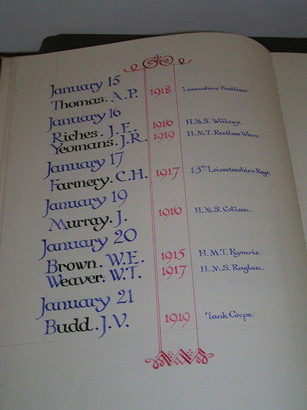 January 15
Thomas. A.P. 1918 Lancashire Fusiliers.
January 16
Riches. J.F. 1916 H.M.S.
Yeomans. J.R. 1919 H.M.T.
January 17
Farmery. C.H. 1917 Leicestershire Regt.
January 19
Murray. J. 1916 H.M.S.
January 20
Brown. W.E. 1915 H.M.T.
Weaver. W.T. 1917 H.M.S. Raglan.
January 21
Budd. J.V. 1919 Tank Corps.